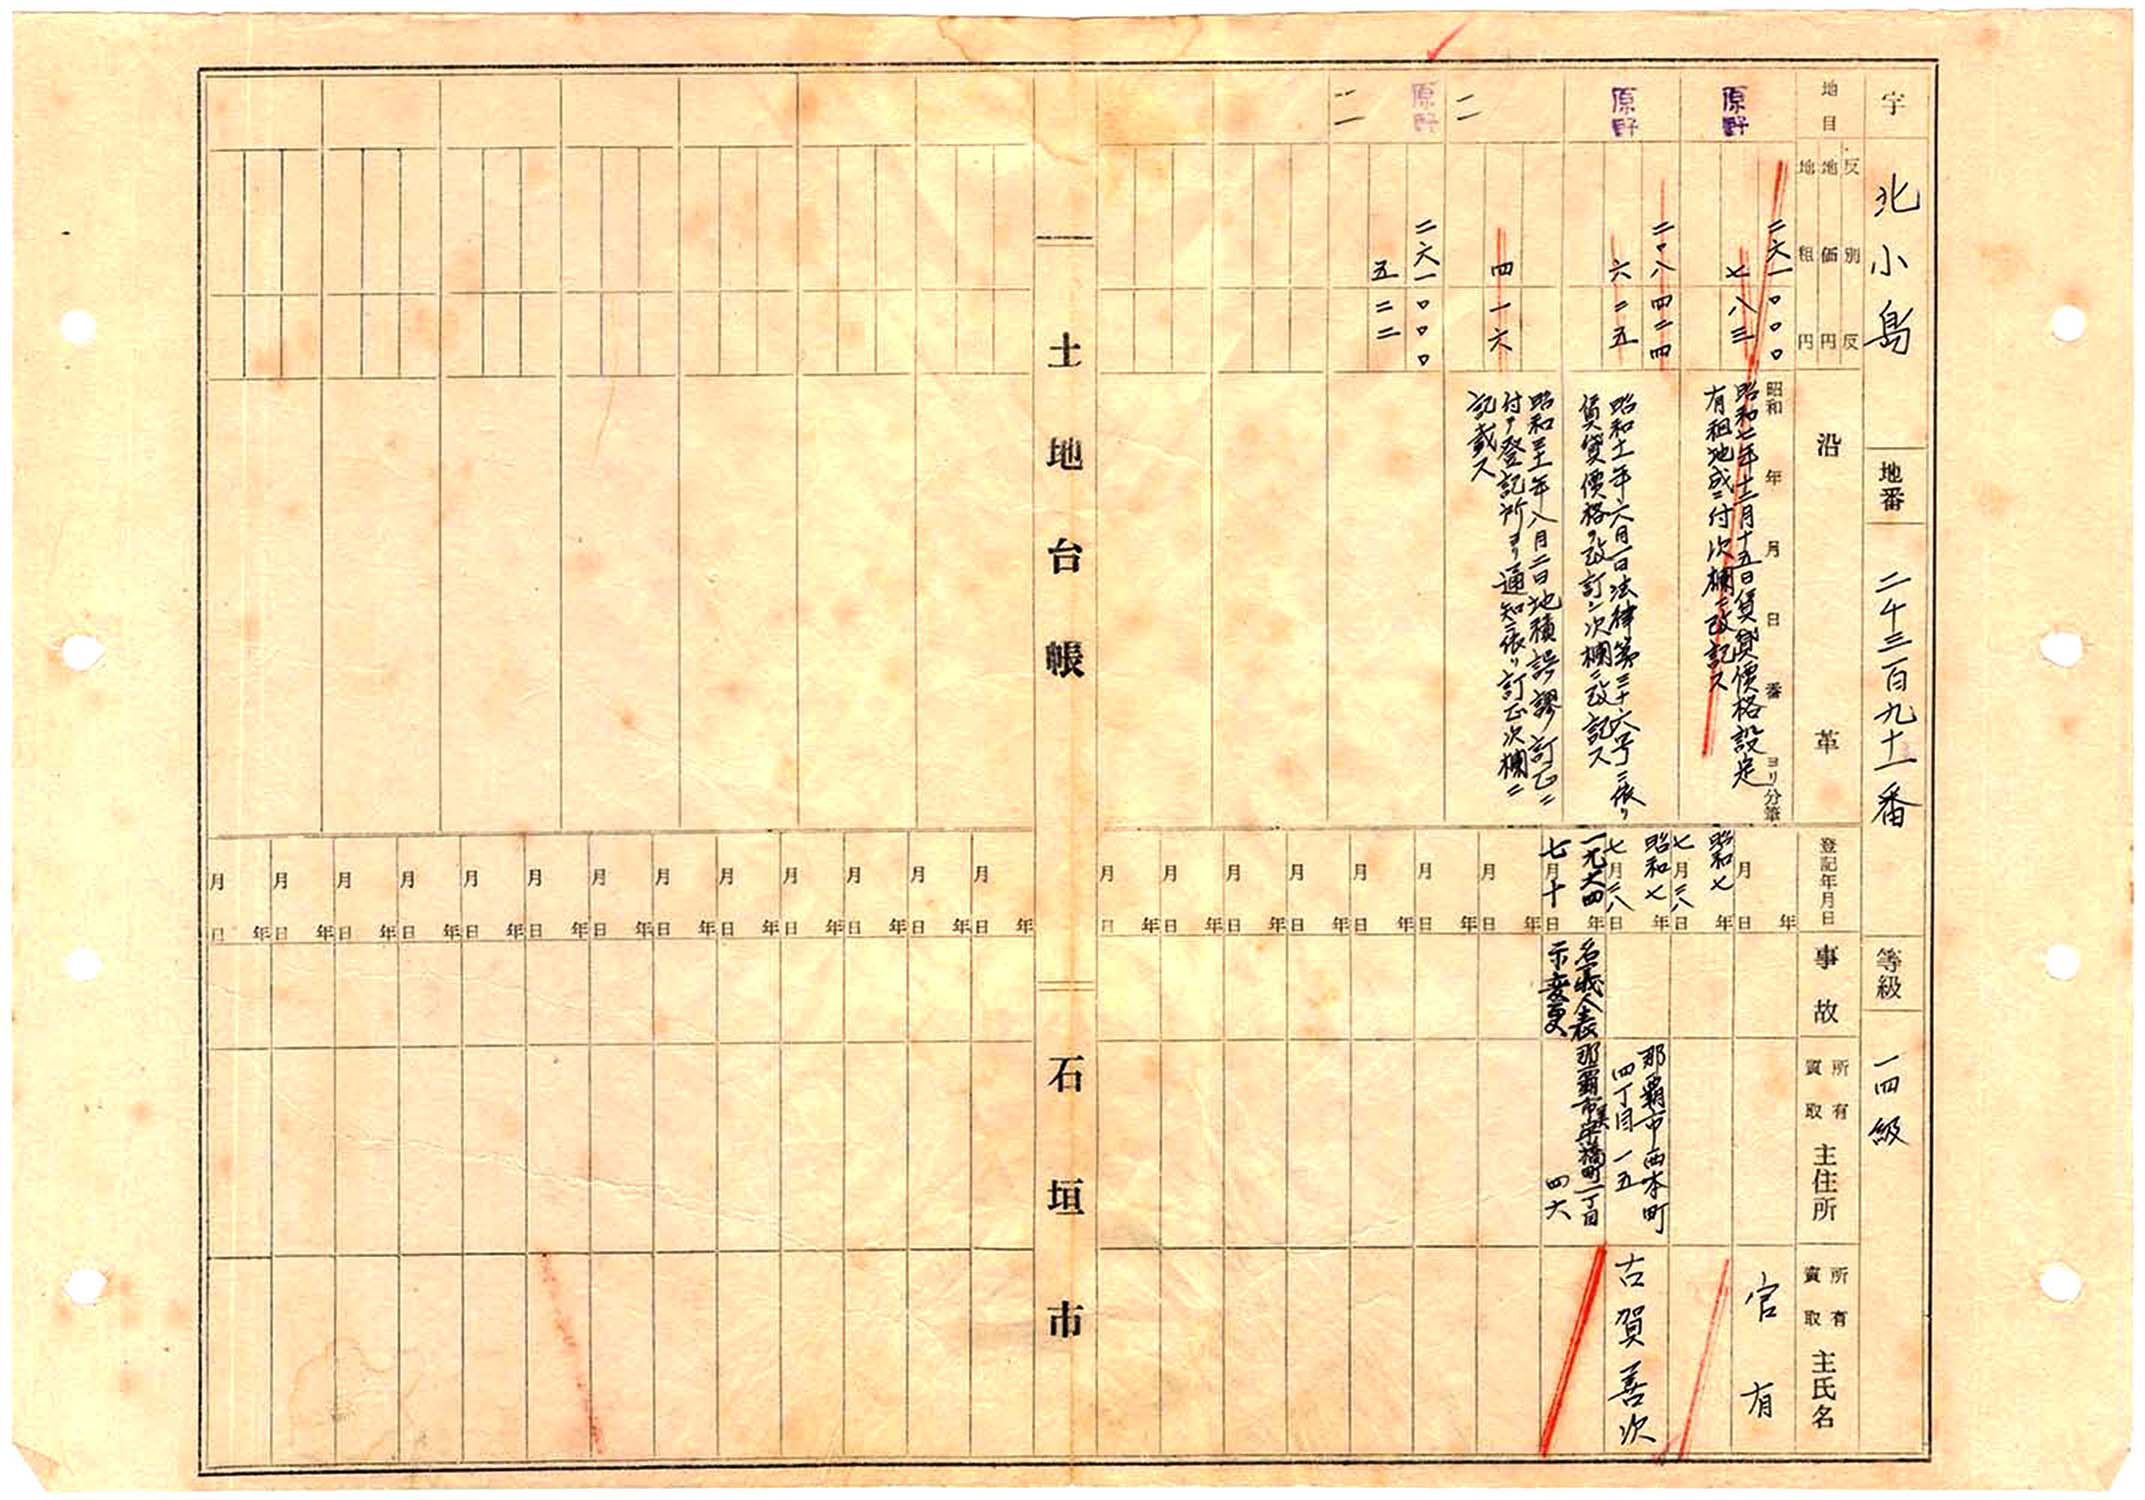 字 北小島 地番 二千三百九十一番 等級 一四級
地目
反別 反
地価 円
地租 円
沿革
登記年月日
事故
所有 質取 主住所
所有 質取 主氏名
原野
二六一〇〇〇
七八三
昭和 年 月 日 番 ヨリ分筆
昭和七年十二月十五日賃貸價格設定
有租地成ニ付次欄ニ改記ス
原野
二〇八四二四
六二五
昭和十一年六月一日法律第三十六号ニ依リ
賃貸價格ヲ改訂シ次欄ニ改記ス
二
四一六
昭和三十一年八月二日地積誤謬訂正ニ
付テ登記所ヨリ通知ニ依リ訂正次欄ニ
記載ス
原野
二六一〇〇〇
五二二
年 月 日
官有
昭和七年
七月二八日
昭和七年
七月二八日
那覇市西本町
四丁目一五
古賀善次
一九六四年
七月十日
名義人表
示変更
那覇市字美橋町一丁目
四六
土地台帳
石垣市